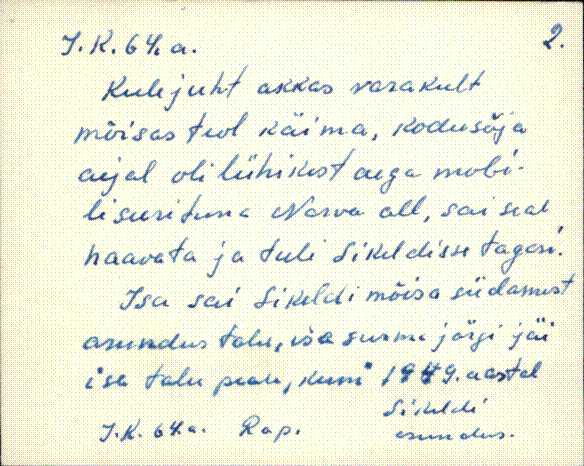 J.K. 64. a. 2.
Kulejuht akkas varakult
mõisas teol käima, kodusõja
aijal oli lühikest aega mobi-
liseerituna Narva all, sai seal
haavata ja tuli Sikeldisse tagasi.
Isa sai Sikeldi mõisa südamest
asundustalu, isa surma järgi jäi
ise talu peale, kuni 1949. aastal
J.K. 64. a. Rap. Sikeldi
asundus.